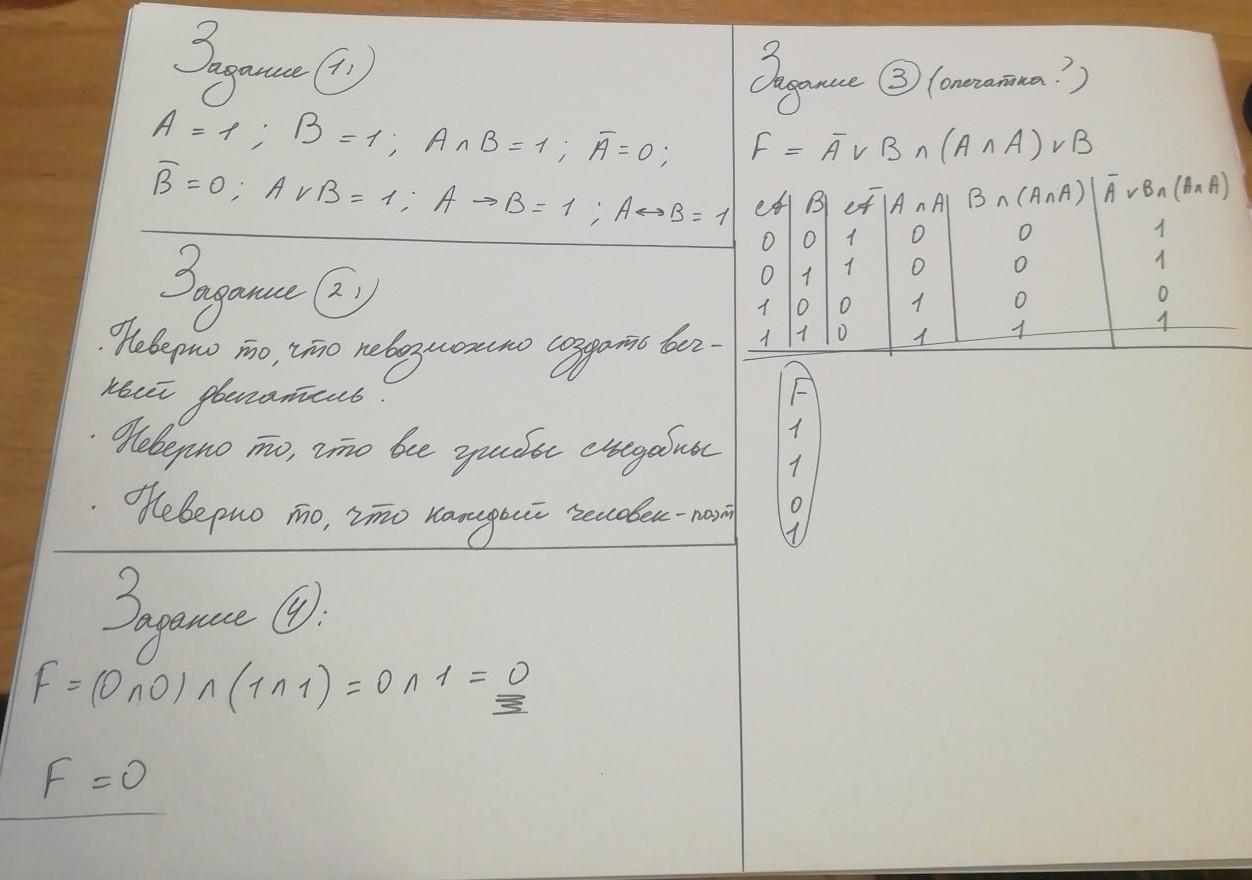 Задание 1,
A = 1 ; B = 1 ; A ∧ B = 1 ; Ā = 0 ;
B̄ = 0 ; A ∨ B = 1 ; A → B = 1 ; A ↔ B = 1
Задание 2,
· Неверно то, что невозможно создать веч-
ный двигатель .
· Неверно то, что все грибы съедобны
· Неверно то, что каждый человек - поэт
Задание 4 :
F = (0 ∧ 0) ∧ (1 ∧ 1) = 0 ∧ 1 = 0
F = 0
Задание 3 (опечатка ?)
F = Ā ∨ B ∧ (A ∧ A) ∨ B
A | B | Ā | A ∧ A | B ∧ (A ∧ A) | Ā ∨ B ∧ (A ∧ A)
0 | 0 | 1 | 0 | 0 | 1
0 | 1 | 1 | 0 | 0 | 1
1 | 0 | 0 | 1 | 0 | 0
1 | 1 | 0 | 1 | 1 | 1
F
1
1
0
1